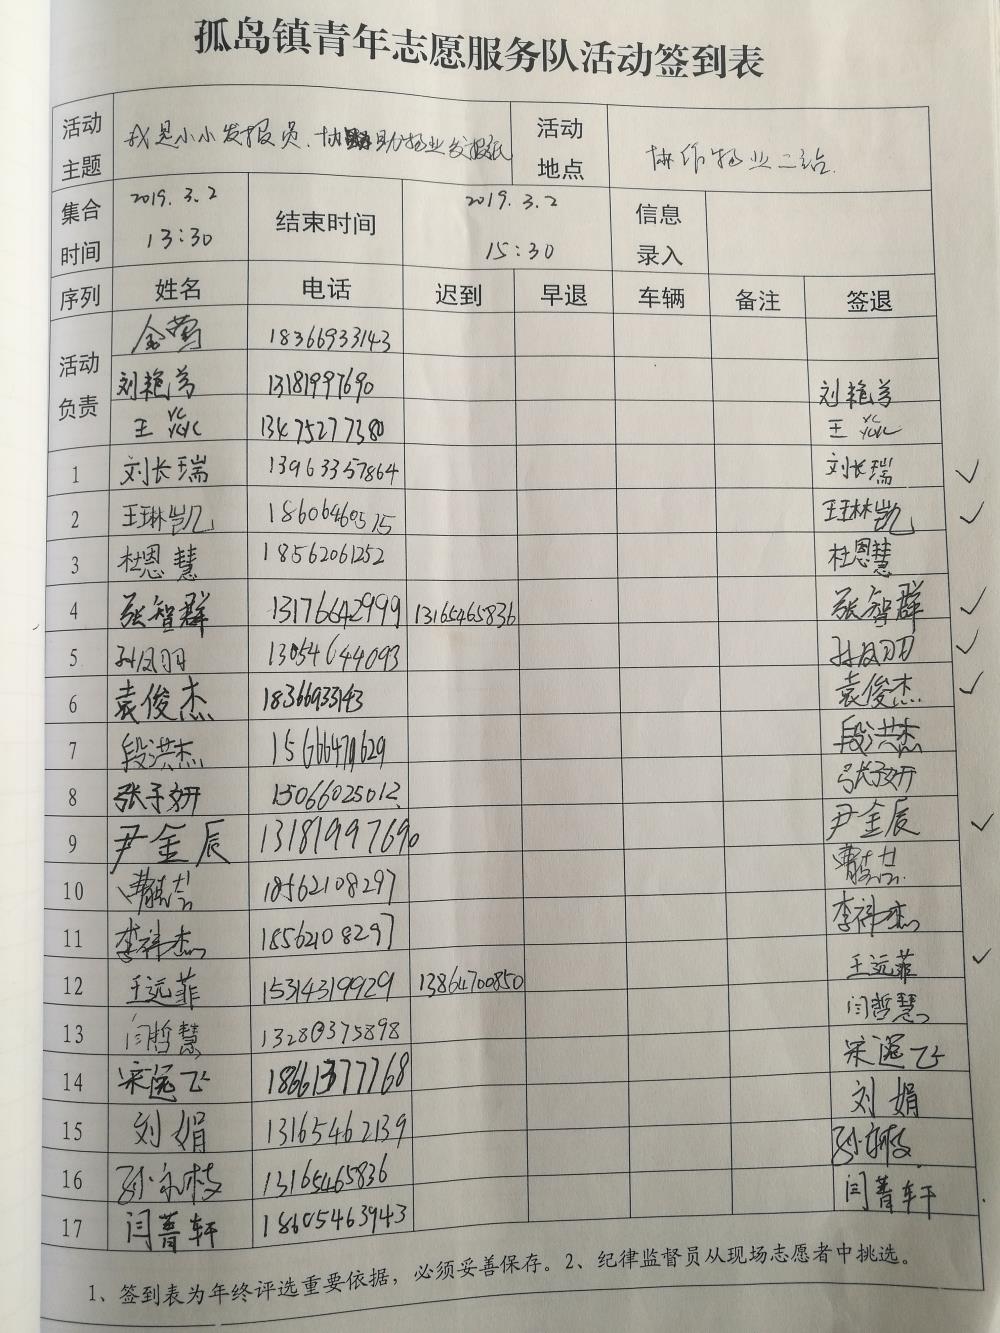 孤岛镇青年志愿服务队活动签到表
活动主题 我是小小发报员、协助物业发报纸 活动地点 协作物业二站
集合时间 2019.3.2 13:30 结束时间 2019.3.2 15:30 信息录入
序列 姓名 电话 迟到 早退 车辆 备注 签退
活动负责 金莺 18366933143
刘艳芳 13181997690 刘艳芳
王 13475277380 王
1 刘长瑞 13963357864 刘长瑞 ✓
2 王琳凯 18606460515 王琳凯 ✓
3 杜恩慧 18562061252 杜恩慧
4 张智群 13176642999 13165465836 张智群 ✓
5 孙凤羽 13054644093 孙凤羽 ✓
6 袁俊杰 18366933143 袁俊杰 ✓
7 段洪杰 段洪杰
8 张子妍 15066025012 张子妍
9 尹金辰 13181997690 尹金辰 ✓
10 18562108297
11 李祥杰 18562108297 李祥杰
12 王远菲 15314319929 13864700850 王远菲 ✓
13 闫哲慧 13280375898 闫哲慧
14 宋逸飞 18661377768 宋逸飞
15 刘娟 13165462139 刘娟
16 孙永枝 13165465836 孙永枝
17 闫菁轩 18605463943 闫菁轩
1、签到表为年终评选重要依据，必须妥善保存。2、纪律监督员从现场志愿者中挑选。